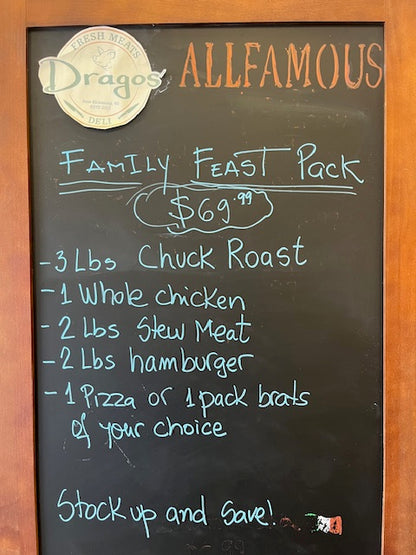 FRESH MEATS
Dragos'
DELI
ALLFAMOUS
FAMILY FEAST Pack
$69.99
-3 Lbs Chuck Roast
-1 Whole chicken
-2 Lbs Stew Meat
-2 Lbs hamburger
-1 Pizza or 1 pack brats
of your choice
Stock up and Save!